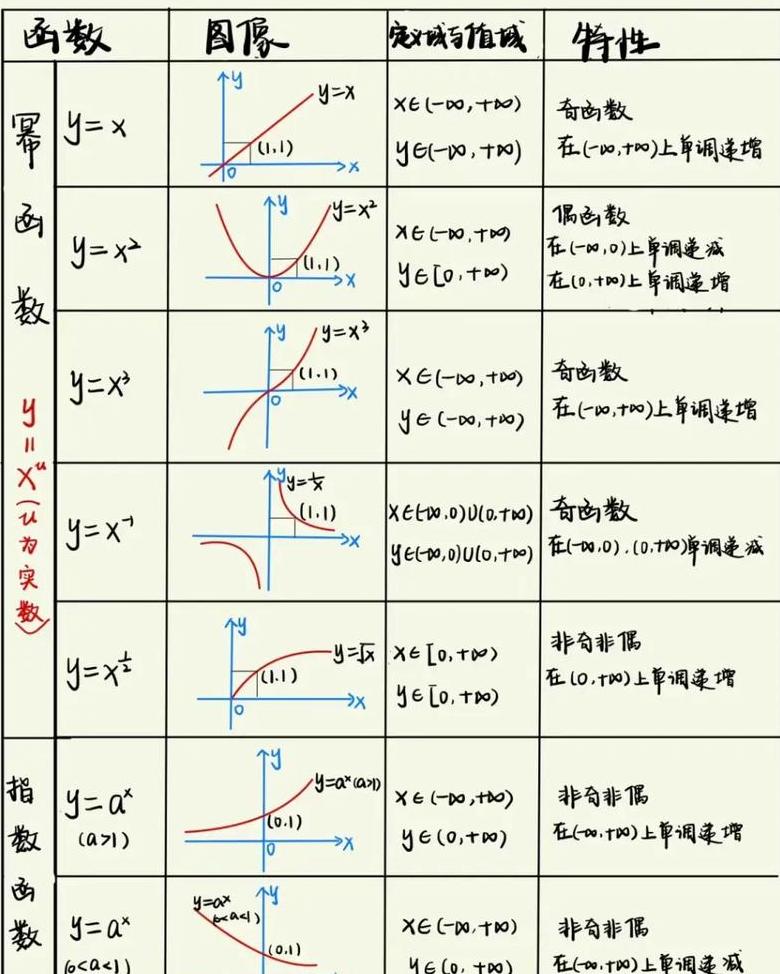 函数 图像 定义域与值域 特性
幂函数 y=x^u (u为实数)
y=x
y
y=x
(1,1)
0
x
x∈(-∞,+∞)
y∈(-∞,+∞)
奇函数
在(-∞,+∞)上单调递增
y=x²
y
y=x²
(1,1)
0
x
x∈(-∞,+∞)
y∈[0,+∞)
偶函数
在(-∞,0)上单调递减
在(0,+∞)上单调递增
y=x³
y
y=x³
(1.1)
0
x
x∈(-∞,+∞)
y∈(-∞,+∞)
奇函数
在(-∞,+∞)上单调递增
y=x⁻¹
y
y=1/x
(1,1)
x
x∈(-∞,0)∪(0,+∞)
y∈(-∞,0)∪(0,+∞)
奇函数
在(-∞,0).(0,+∞)单调递减
y=x^½
y
y=√x
(1.1)
0
x
x∈[0,+∞)
y∈[0,+∞)
非奇非偶
在(0,+∞)上单调递增
指数函数
y=aˣ
(a>1)
y
y=aˣ(a>1)
(0.1)
0
x
x∈(-∞,+∞)
y∈(0,+∞)
非奇非偶
在(-∞,+∞)上单调递增
y=aˣ
(0<a<1)
y
y=aˣ
(0<a<1)
(0.1)
x∈(-∞,+∞)
y∈(0,+∞)
非奇非偶
在(-∞,+∞)上单调递减